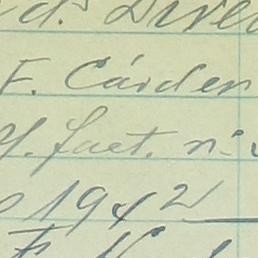 d. Dire
F. Cárden
y. fact. n.
1942
F.